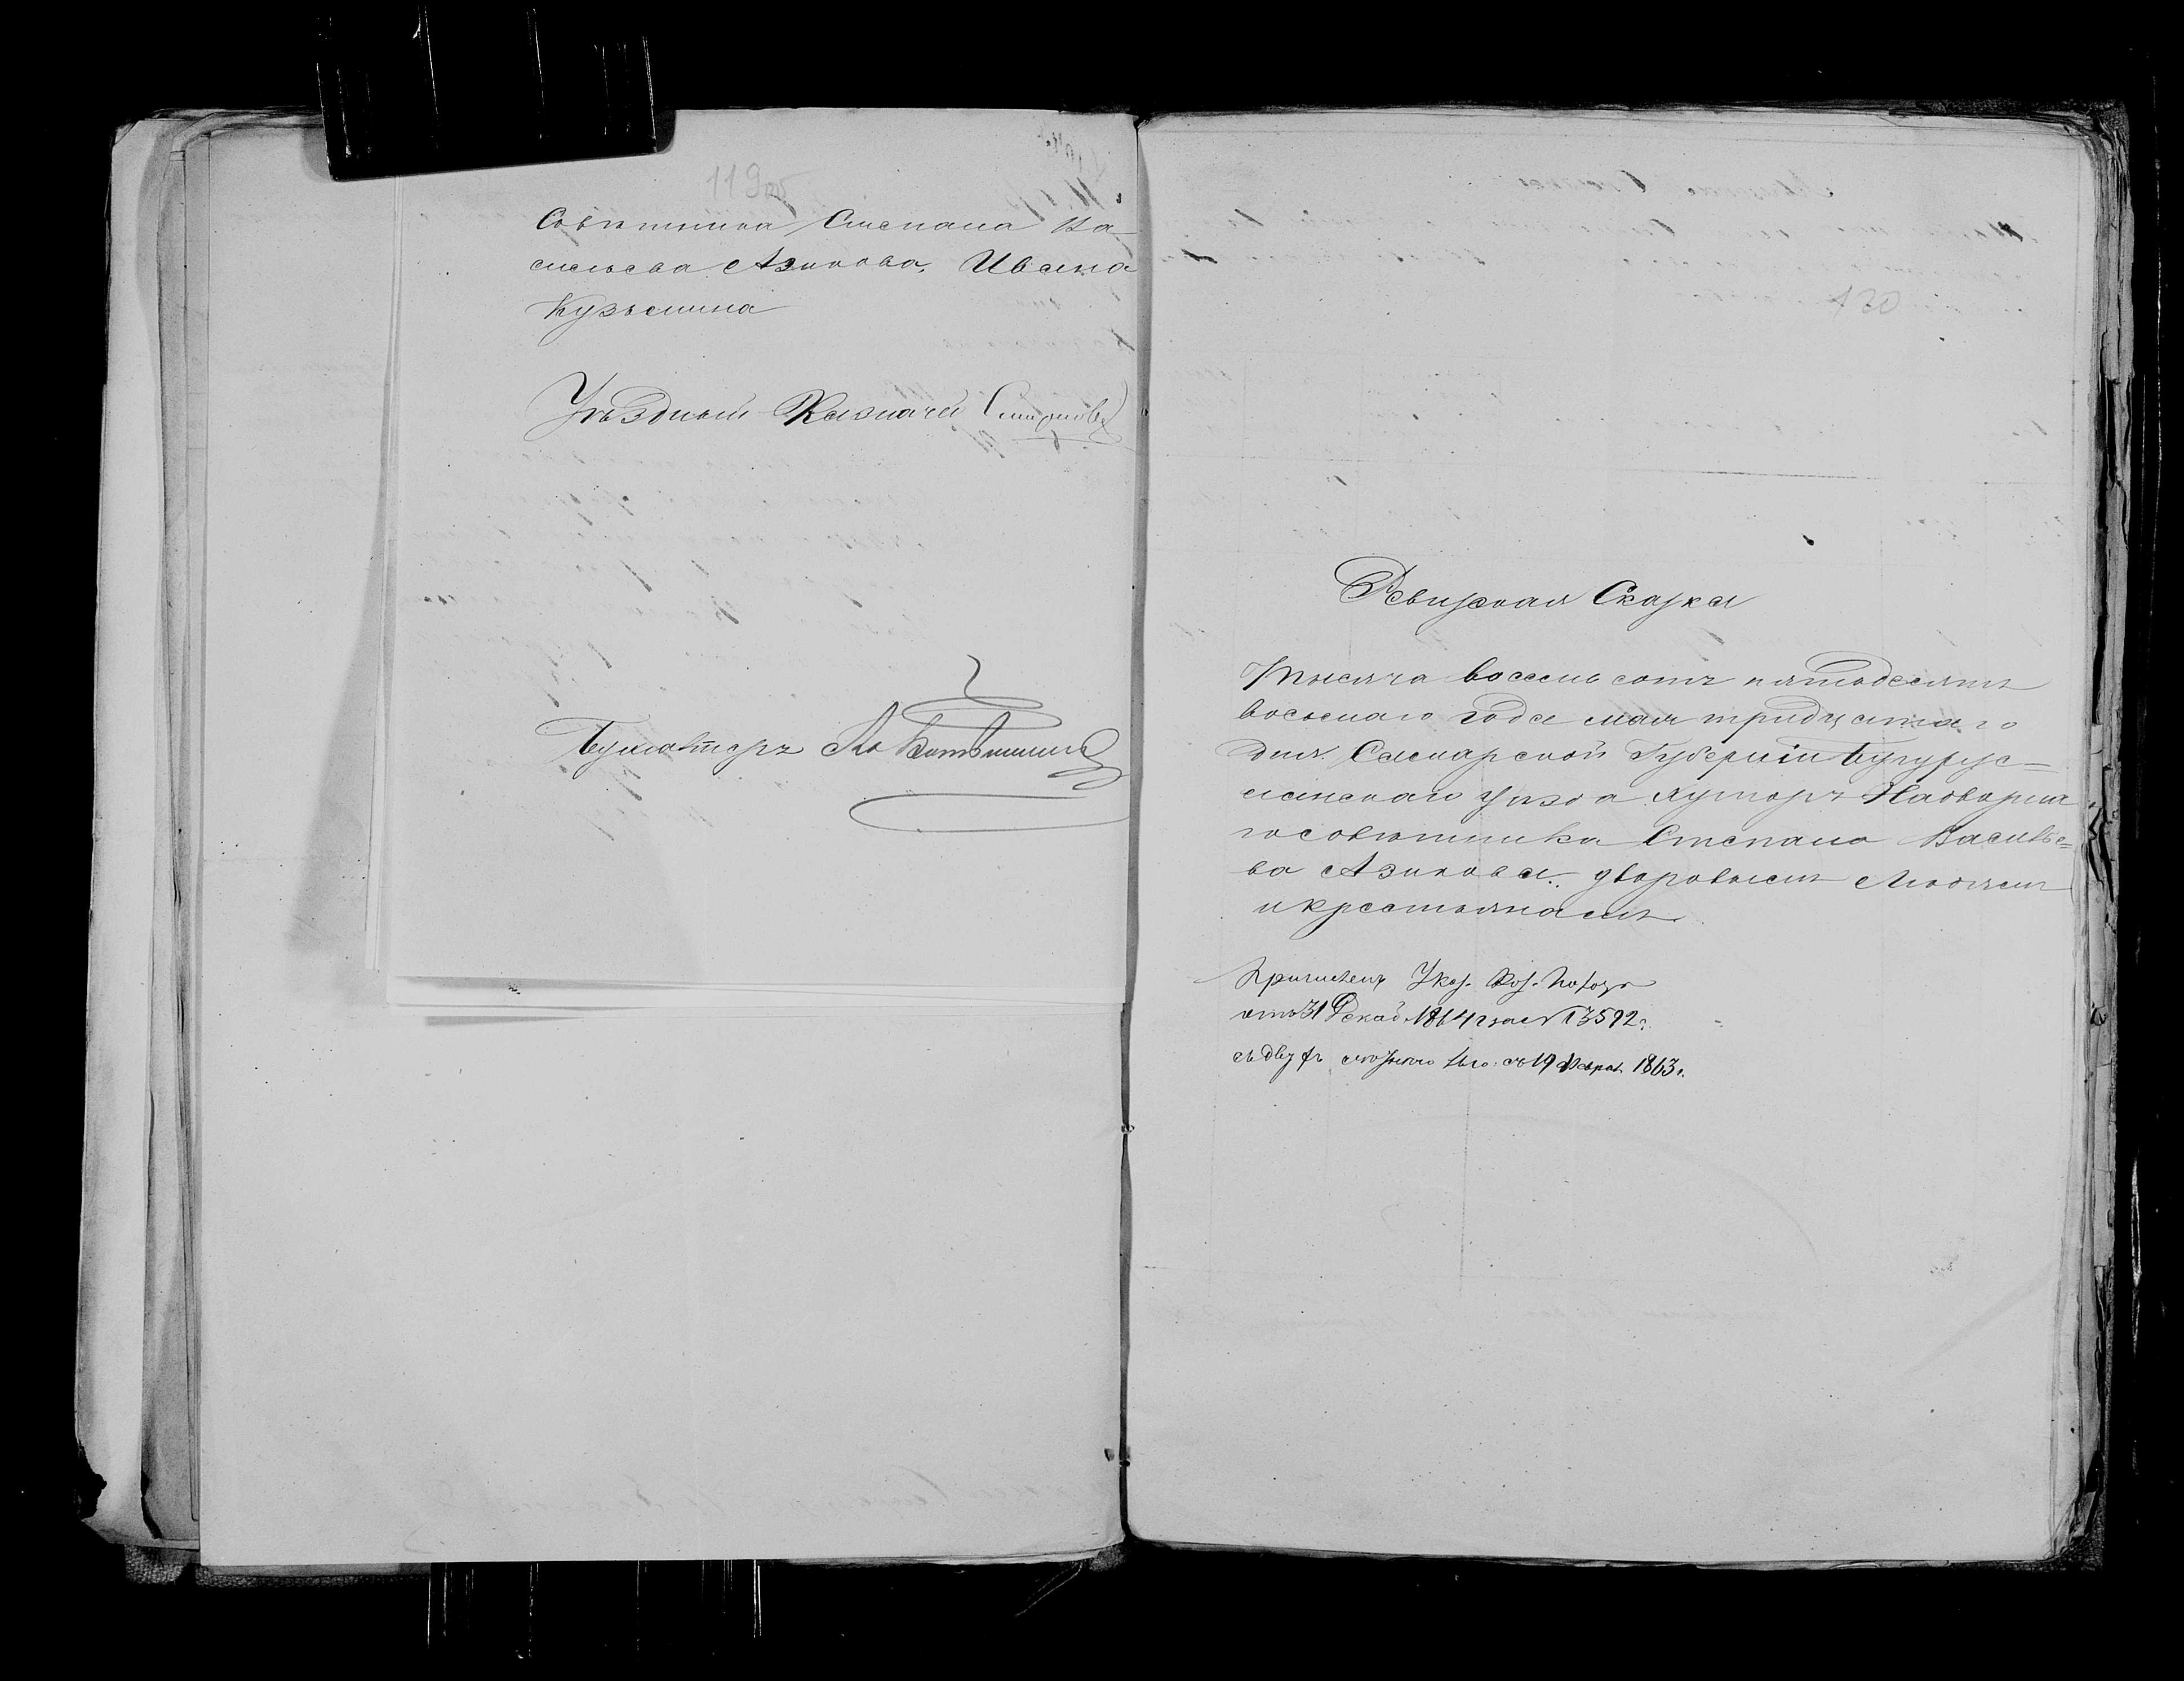 119об
Совѣтника Степана Ва-
сильева Азикова, Ивана
Кузьмина
Уѣздный Казначей Смирновъ
Бухгалтеръ
120
Ревизская Сказка
Тысяча восемь сотъ пятьдесятъ
восьмаго года мая тридцатаго
дня. Самарской Губерніи Бугурус=
ланскаго уѣзда хуторъ Надворна
го совѣтника Степана Василье=
ва Азикова. дворовымъ людямъ
и крестьянамъ.
Причислены Указ. Каз. Палаты
отъ 31 Декаб. 1864 г за № 13592.
съ 19 Феврал. 1863 г.